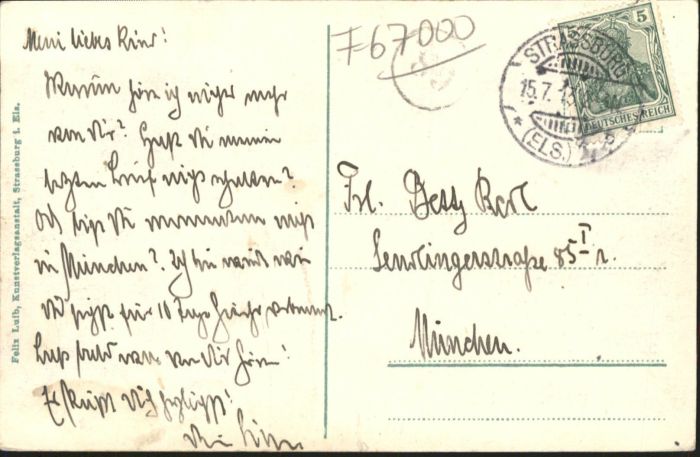 Mein liebes Kind!
Warum höre ich nichts mehr
von Dir? Hast Du meinen
letzten Brief nicht erhalten?
Od bist Du momentan nicht
in München? Ich bin
Du siehst für 10 Tage
Laß bald was von Dir hören!
Es küßt Dich herzlichst!
Dein
Felix Luib, Kunstverlagsanstalt, Strassburg i. Els.
F67000
STRASSBURG
15.7.13
* (ELS.) 1 *
5
DEUTSCHES REICH
Frl. Betty Kerl
Sendlingerstraße 85 I r.
München.